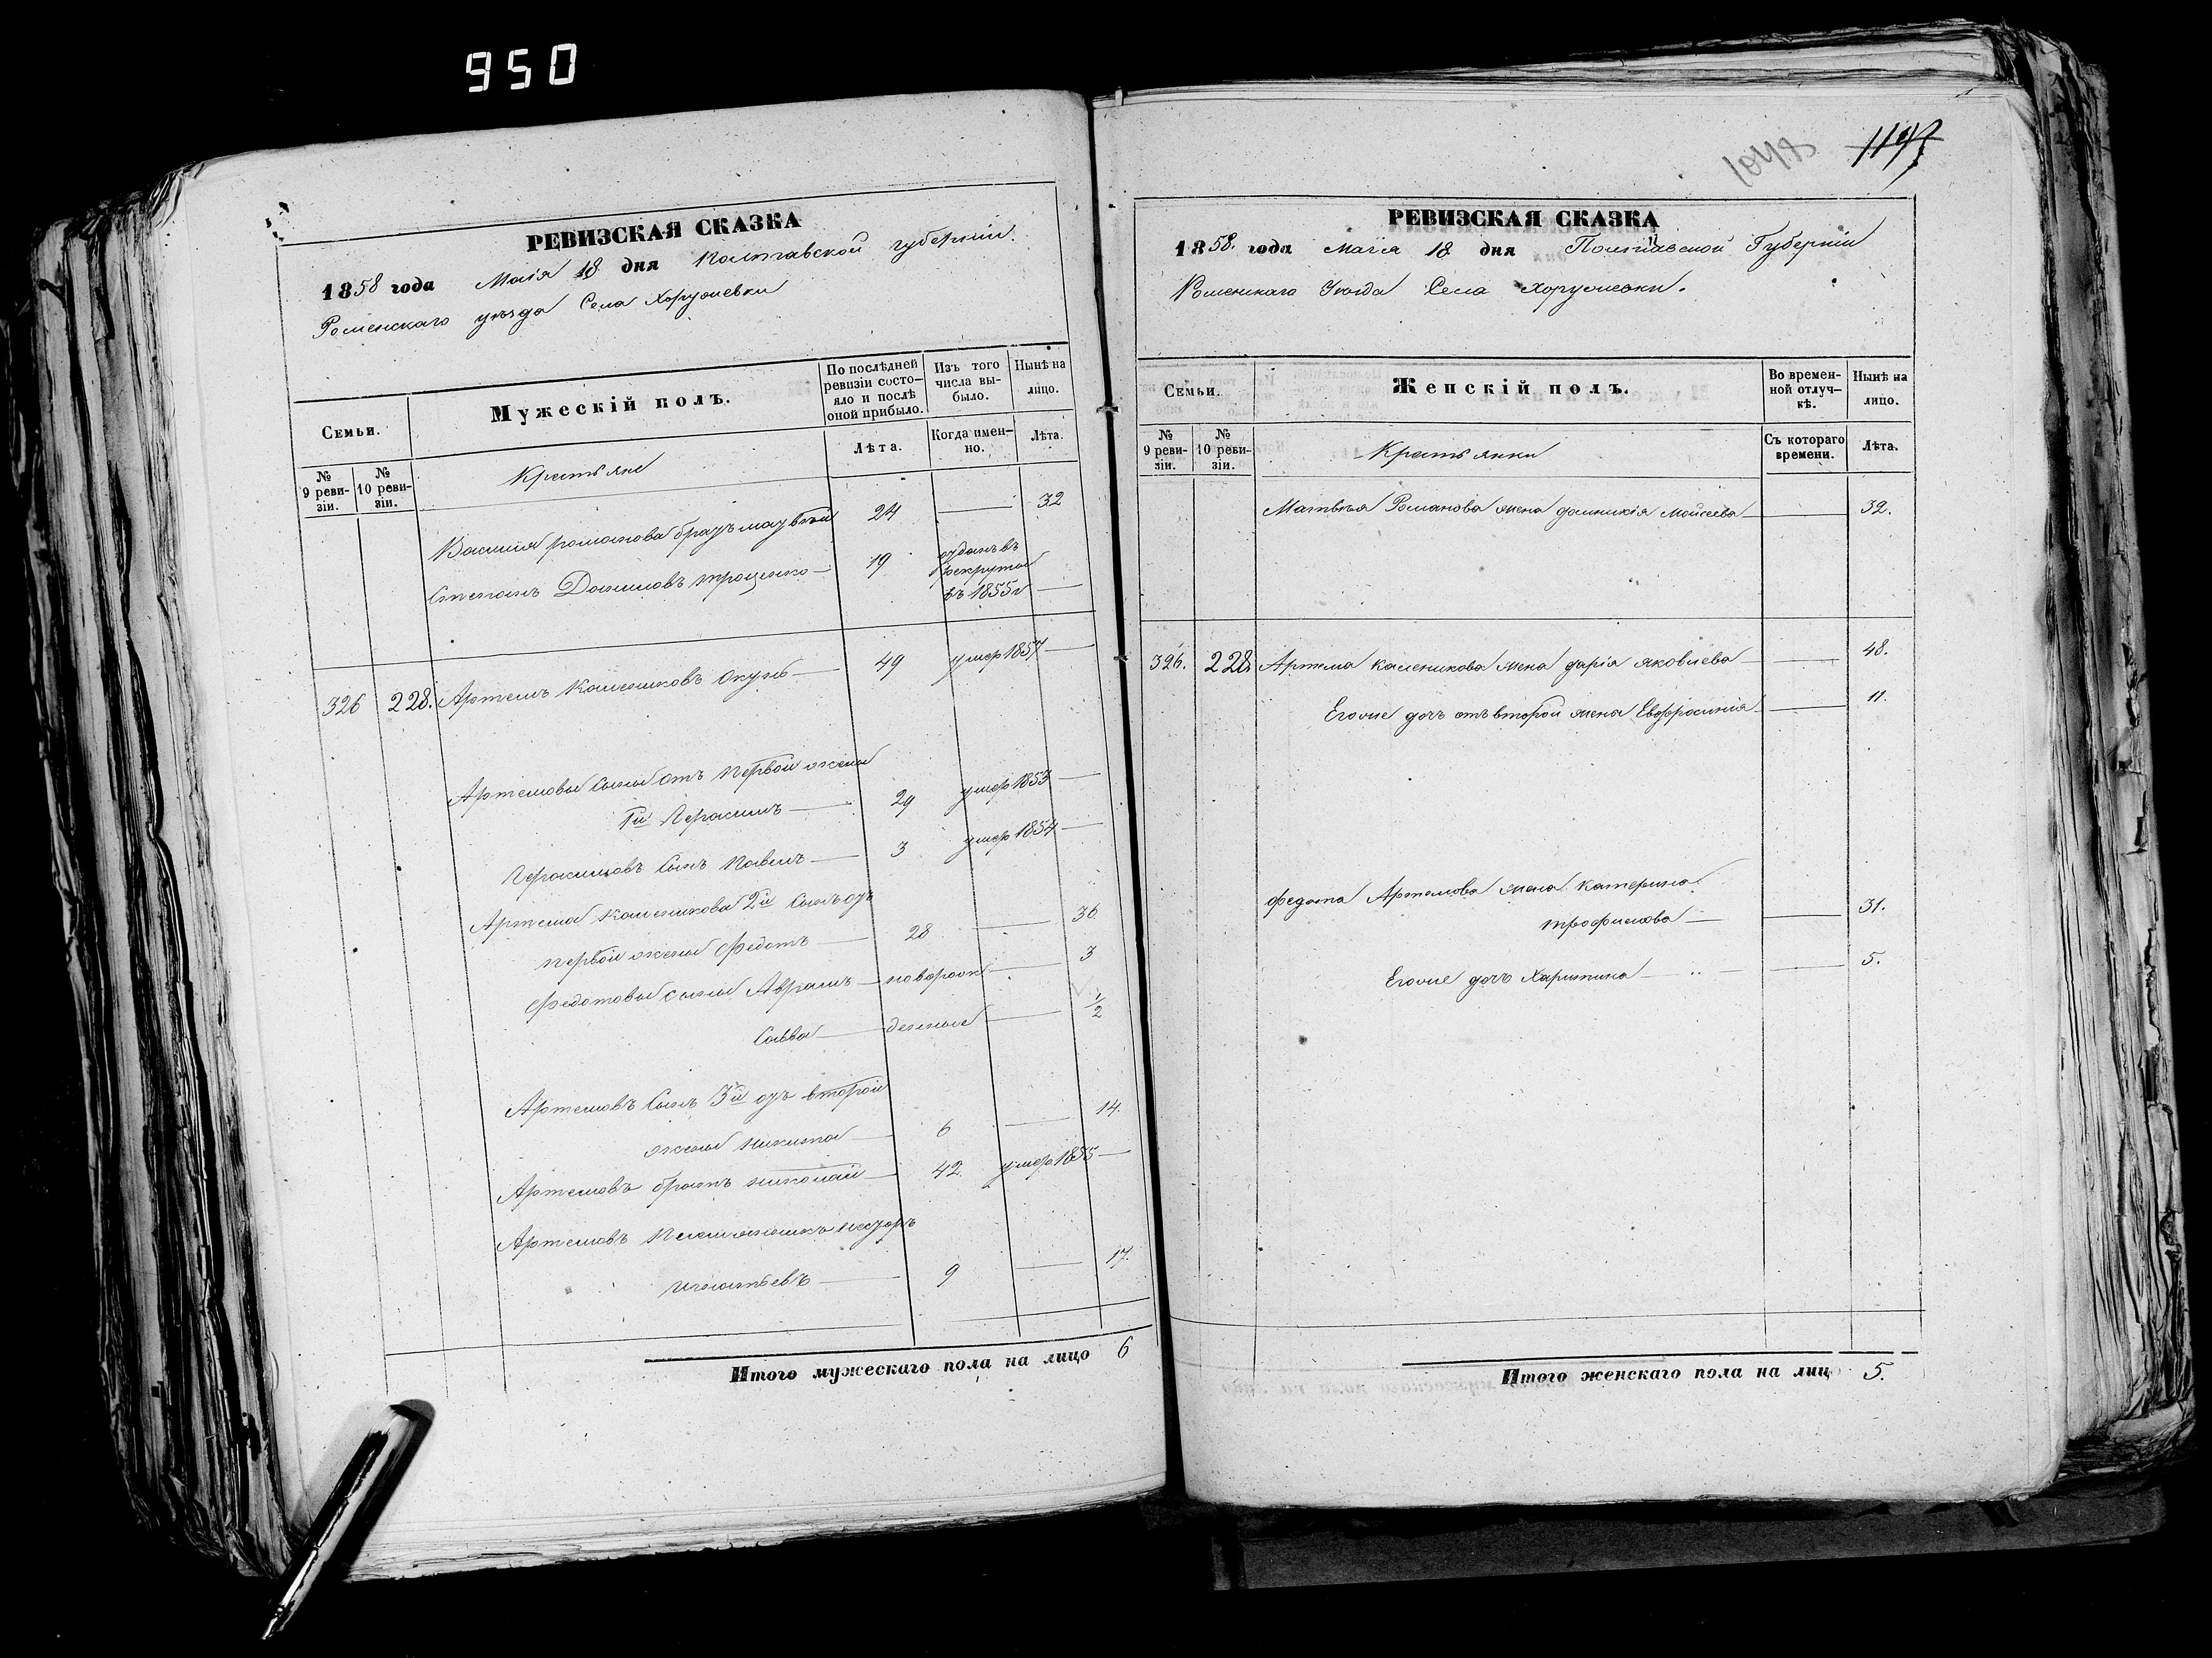 950
РЕВИЗСКАЯ СКАЗКА
1858 года Маія 18 дня Полтавской губерніи.
Роменскаго уѣзда Села Хоружевки
Семьи.
Мужескій полъ.
По послѣдней ревизіи состояло и послѣ оной прибыло.
Изъ того числа выбыло.
Нынѣ на лицо.
№ 9 ревизіи.
№ 10 ревизіи.
Крестьяне
Лѣта.
Когда именно.
Лѣта.
Василія романова братъ матвѣй 24 — 32
Степанъ Даниловъ троценко — 19 отданъ въ рекруты въ 1855 г —
326 228. Артемъ Калениковъ Окунь — 49 умер 1857 —
Артемовы сыны отъ первой жены
1й Герасимъ — 29 умер 1853 —
Герасимовъ сынъ Павелъ — 3 умер 1854 —
Артема Каленикова 2й сынъ отъ
первой жены Федотъ — 28 — 36
Федотовы сыны Аврамъ — новорож — 3
Савва — денные — 1/2
Артемовъ сынъ 3й отъ второй
жены никита — 6 — 14.
Артемовъ братъ николай — 42. умер. 1855 —
Артемовъ племянникъ несторъ
игнатьевъ — 9 — 17.
Итого мужескаго пола на лицо 6
1048
1197
РЕВИЗСКАЯ СКАЗКА
1858. года Маія 18 дня Полтавской Губерніи
Роменскаго Уѣзда Села Хоружевки.
Семьи.
Женскій полъ.
Во временной отлучкѣ.
Нынѣ на лицо.
№ 9 ревизіи.
№ 10 ревизіи.
Крестьянки
Съ котораго времени.
Лѣта.
Матвѣя Романова жена домникія Мойсеева — 32.
326. 228 Артема каленикова жена дарія яковлева — 48.
Егоже дочь отъ второй жены Евфросинія — 11.
Федота Артемова жена катерина
трофимова — 31.
Егоже дочь Харитина — 5.
Итого женскаго пола на лиц 5.